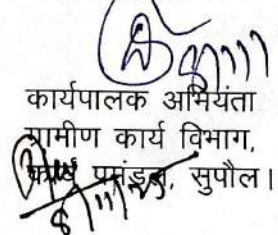 कार्यपालक अभियंता
ग्रामीण कार्य विभाग,
कार्य प्रमंडल, सुपौल।